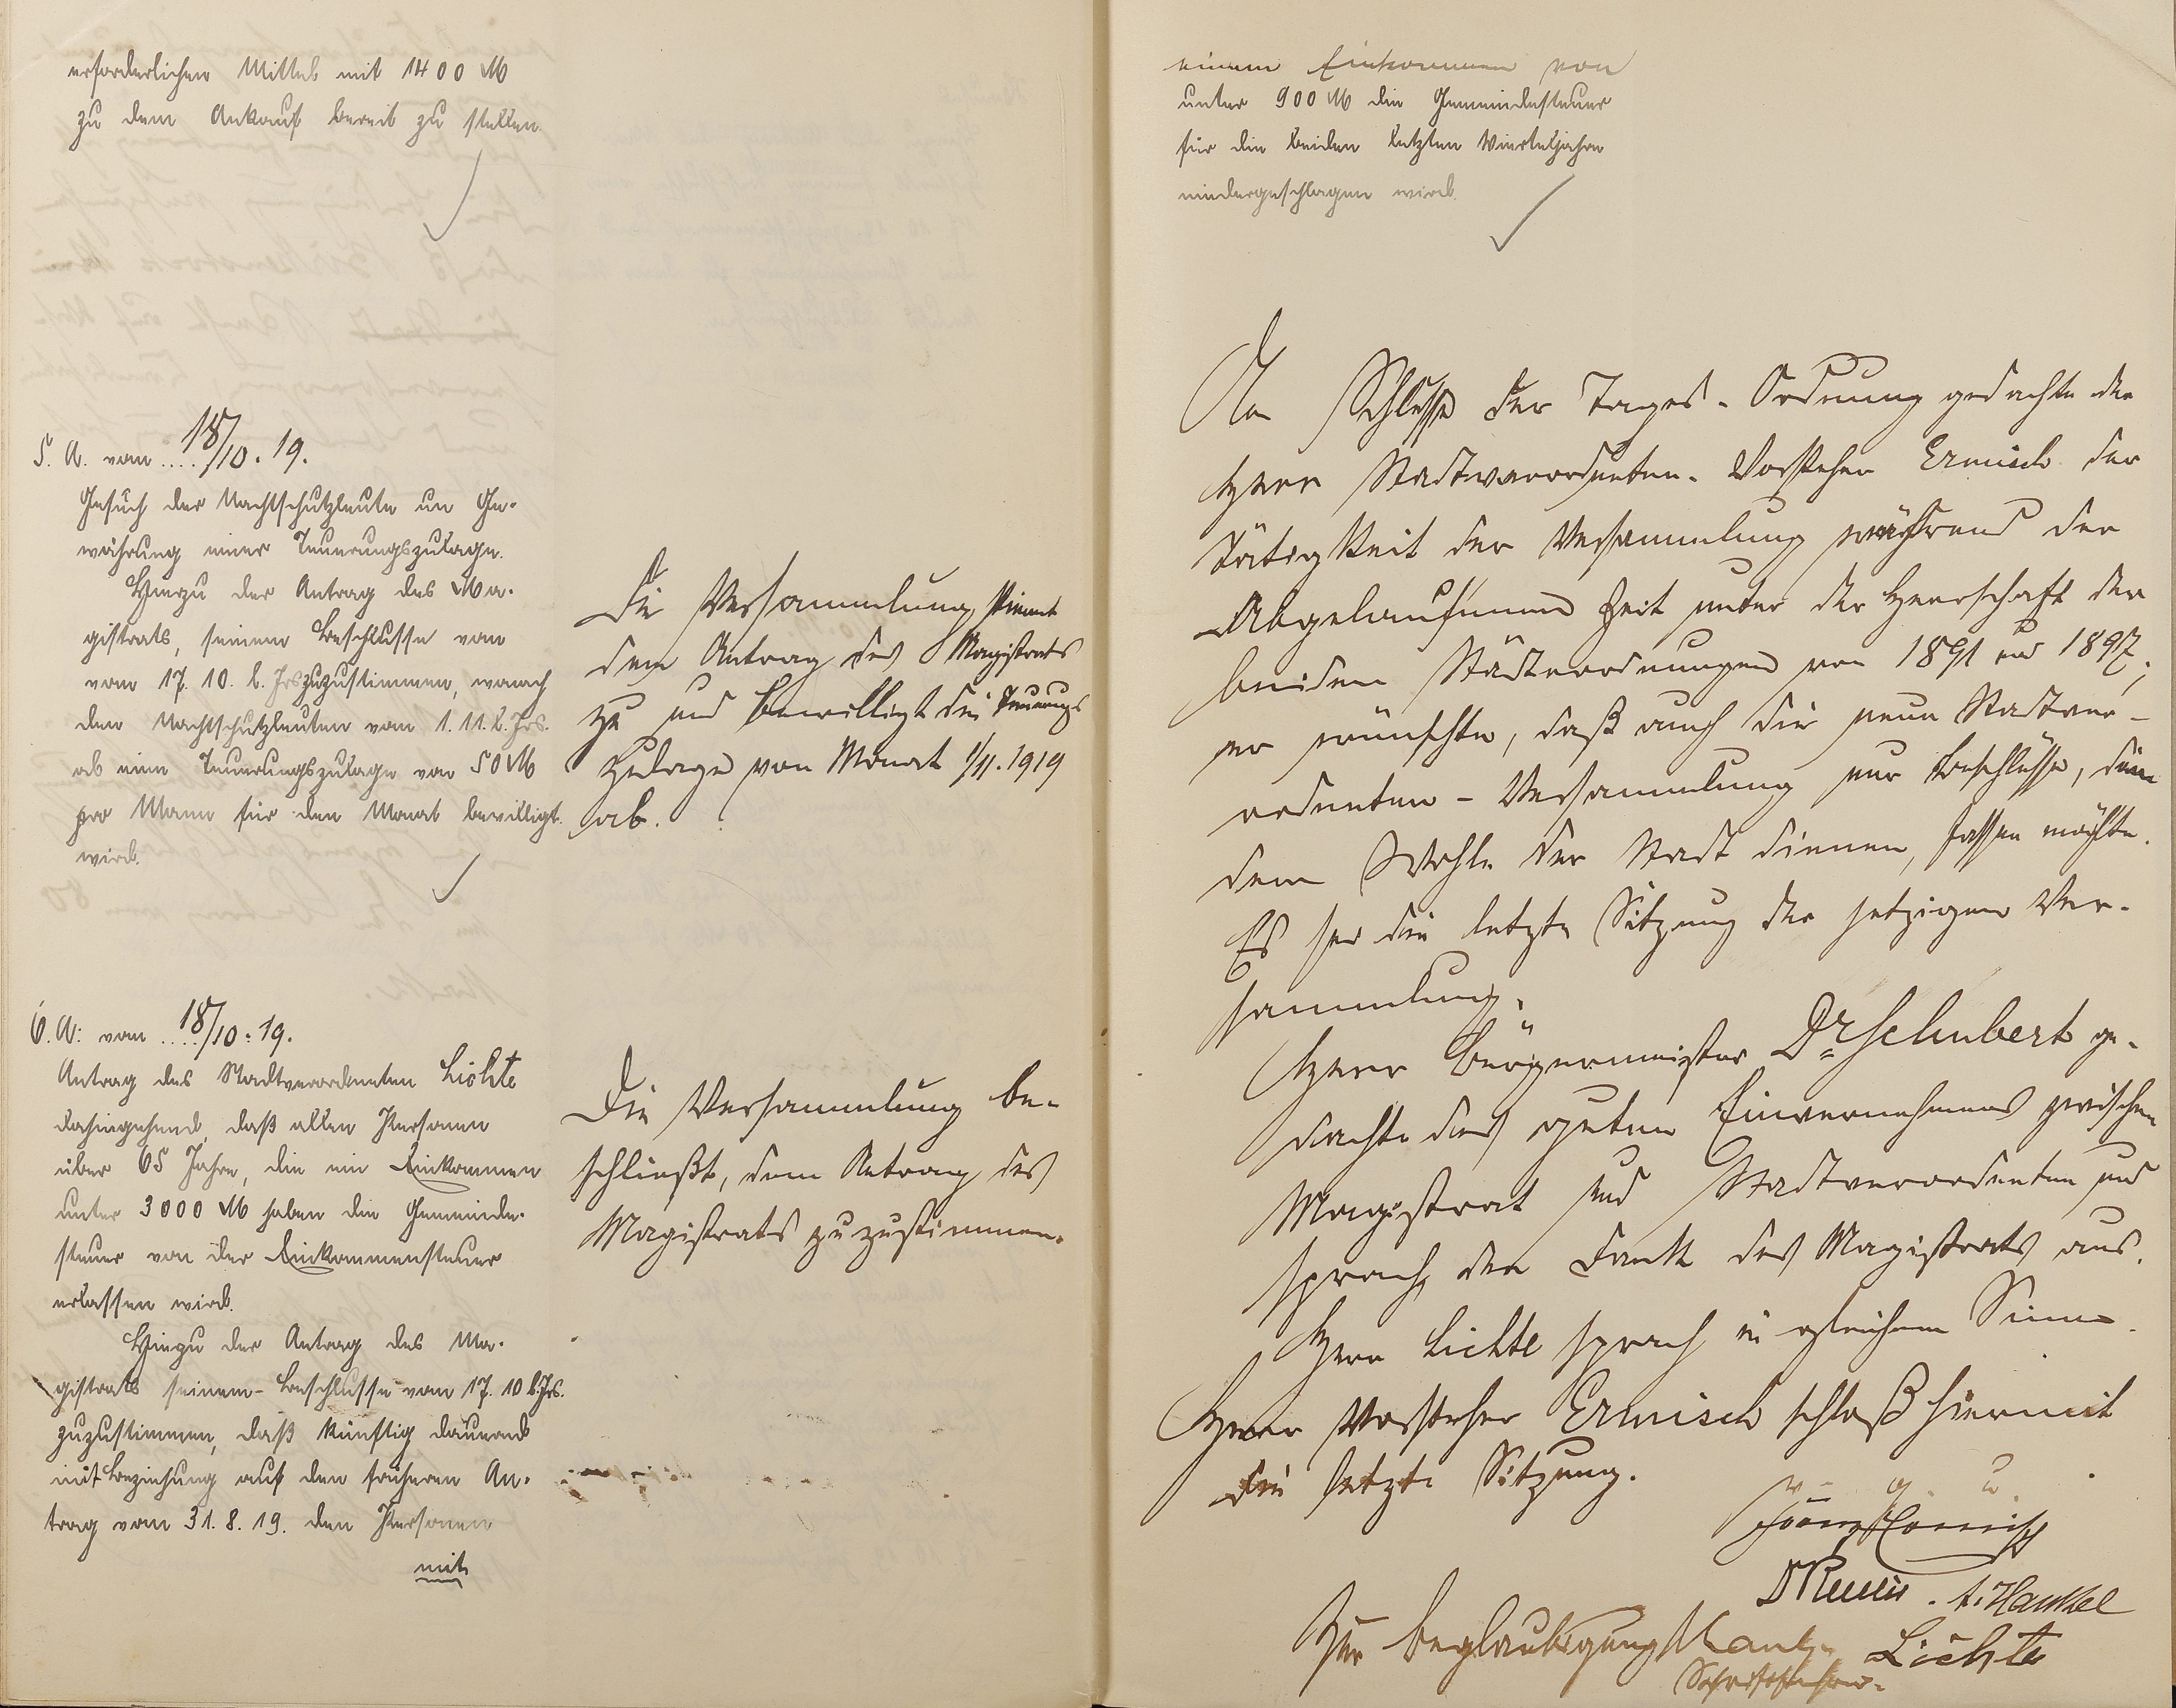 erforderlichen Mittel mit 1400 M
zu dem Ankauf bereit zu stellen.
5. A. vom .... 18/10. 19.
Gesuch der Nachtschutzleute um Ge-
währung einer Teuerungszulage.
Hierzu der Antrag des Ma-
gistrats, seinem Beschlusse vom
vom 17. 10. l. Jrs. zuzustimmen, wonach
den Nachtschutzleuten vom 1. 11. l. Jrs.
ab eine Teuerungszulage von 50 M
pro Mann für den Monat bewilligt
wird.
Die Versammlung stimmt
dem Antrag des Magistrats
zu und bewilligt die Teuerungs
Zulage von Monat 1/11. 1919
ab.
6. A: vom .... 18/10. 19.
Antrag des Stadtverordneten Lichte
dahingehend, daß allen Personen
über 65 Jahre, die ein Einkommen
unter 3000 M haben die Gemeinde-
steuer von der Einkommensteuer
erlassen wird.
Hierzu der Antrag des Ma-
gistrats seinem Beschlusse vom 17. 10 l. Jrs.
zuzustimmen, daß künftig dauernd
mit Beziehung auf den früheren An-
trag vom 31. 8. 19. den Personen
mit
Die Versammlung be-
schließt, dem Antrag des
Magistrats zuzustimmen.
einem Einkommen von
unter 900 M die Gemeindesteuer
für die beiden letzten Vierteljahre
niedergeschlagen wird.
Am Schluss der Tages-Ordnung gedachte der
Herr Stadtverordneten-Vorsteher Ermisch der
Tätigkeit der Versammlung während der
Abgelaufenen Zeit unter der Herrschaft der
beiden Städteordnungen von 1891 und 1897;
er wünschte, daß auch die neue Stadtver-
ordneten-Versammlung nur Beschlüsse, die
dem Wohle der Stadt dienen, fassen möchte.
Es sei die letzte Sitzung der jetzigen Ver-
sammlung.
Herr Bürgermeister Dr Schubert ge-
dachte des guten Einvernehmens zwischen
Magistrat und Stadtverordneten und
sprach den Dank des Magistrats aus.
Herr Lichte sprach in gleichem Sinne.
Herr Vorsteher Ermisch schloß hiermit
die letzte Sitzung.
v. g. u.
Ermisch
A. Hankel
Zur Beglaubigung Lichte
Schriftführer.